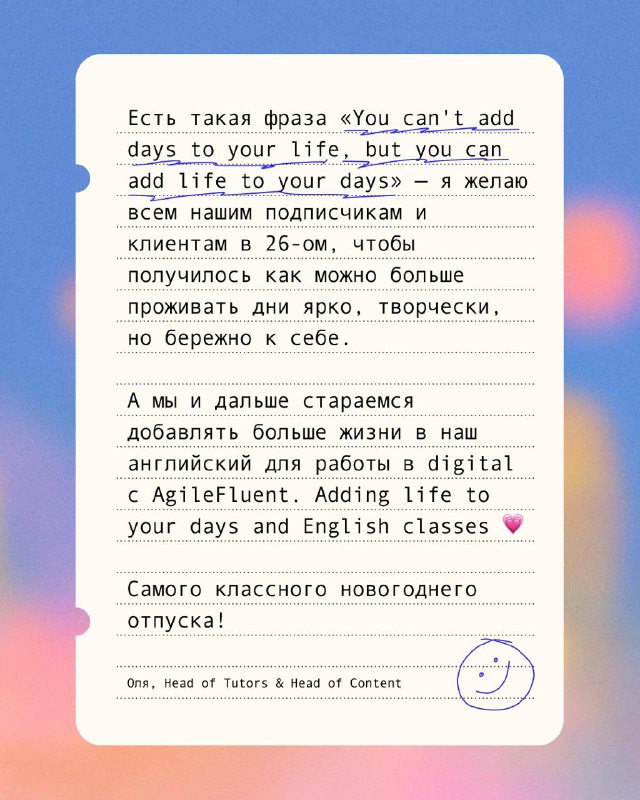 Есть такая фраза «You can't add
days to your life, but you can
add life to your days» — я желаю
всем нашим подписчикам и
клиентам в 26-ом, чтобы
получилось как можно больше
проживать дни ярко, творчески,
но бережно к себе.
А мы и дальше стараемся
добавлять больше жизни в наш
английский для работы в digital
с AgileFluent. Adding life to
your days and English classes 💗
Самого классного новогоднего
отпуска!
Оля, Head of Tutors & Head of Content